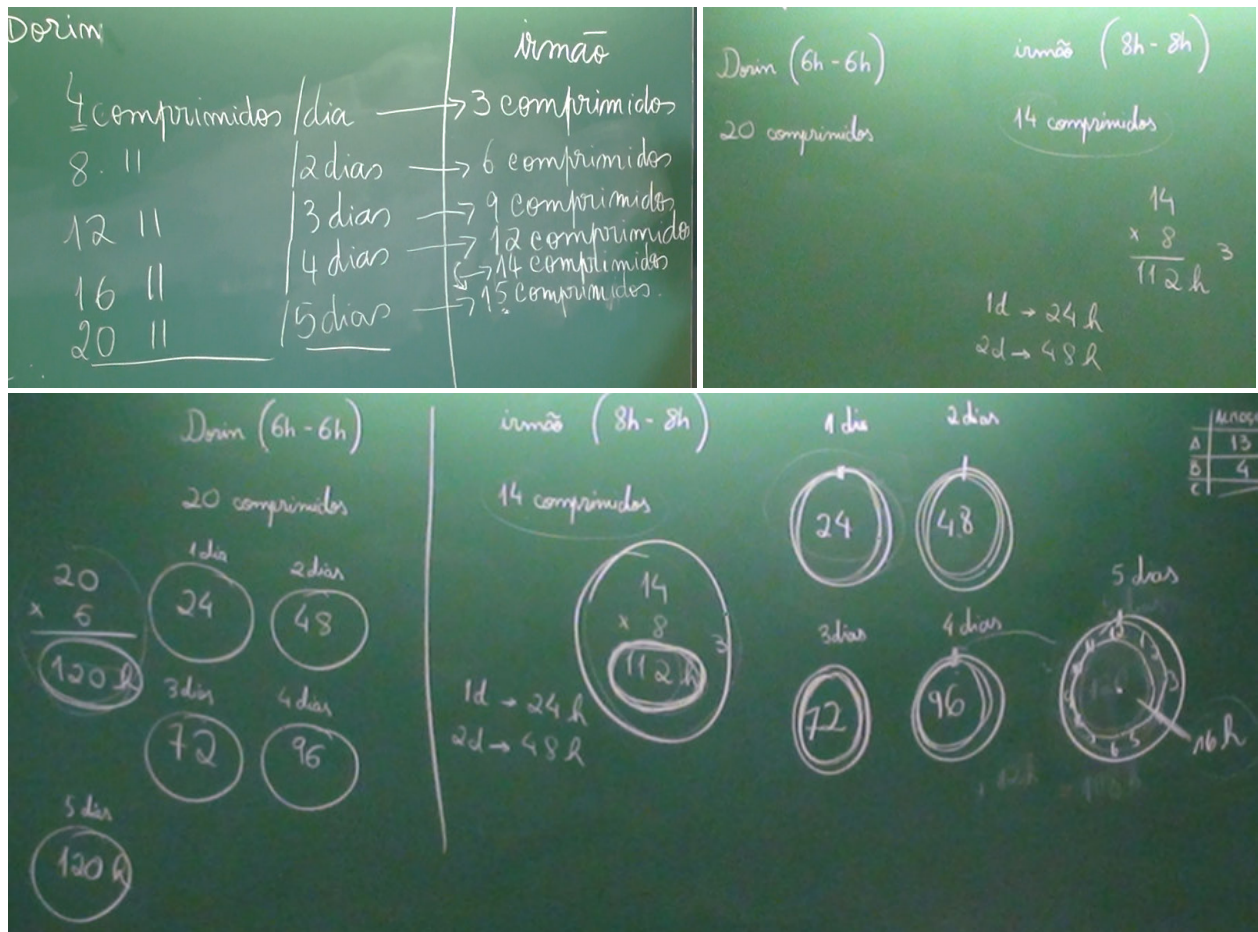 Dorim
irmão
4 comprimidos /dia → 3 comprimidos
8. 11 /2 dias → 6 comprimidos
12 11 /3 dias → 9 comprimidos
16 11 /4 dias → 12 comprimidos
→ 14 comprimidos
20 11 /5 dias → 15 comprimidos.
Dorin (6h - 6h)
irmão (8h - 8h)
20 comprimidos
14 comprimidos
14
x 8
112 h
3
1d → 24 h
2d → 48 h
Dorin (6h - 6h)
20 comprimidos
20
x 6
120 h
1 dia
24
2 dias
48
3 dias
72
4 dias
96
5 dias
120 h
irmão (8h - 8h)
14 comprimidos
14
x 8
112 h
3
1d → 24 h
2d → 48 h
1 dia
24
2 dias
48
3 dias
72
4 dias
96
5 dias
16 h
A 13
B 4
C